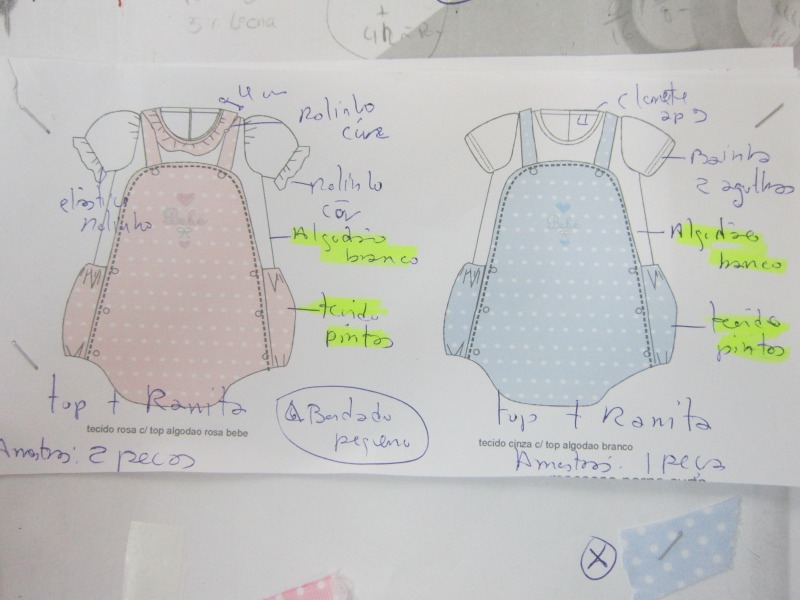 4 cm
Rolinho
côr
Rolinho
côr
elástico
Rolinho
Algodão
branco
tecido
pintas
Bebé
top + Ranita
tecido rosa c/ top algodao rosa bebe
Amostras: 2 pecas
Bordado
pequeno
Bainha
2 agulhas
Algodão
branco
tecido
pintas
top + Ranita
tecido cinza c/ top algodao branco
Amostras: 1 peca
X